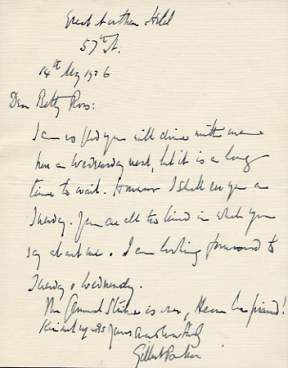 Great Northern Hotel
57th St.
14th May 1926
Dear Betty Ross:
I am so glad you will dine with me
here on Wednesday next, but it is a long
time to wait. However I shall see you on
Tuesday. You are all too kind in what you
say about me. I am looking forward to
Tuesday & Wednesday.
The General Strike is over, Heaven be praised!
Kindest regards Yours
Gilbert Parker